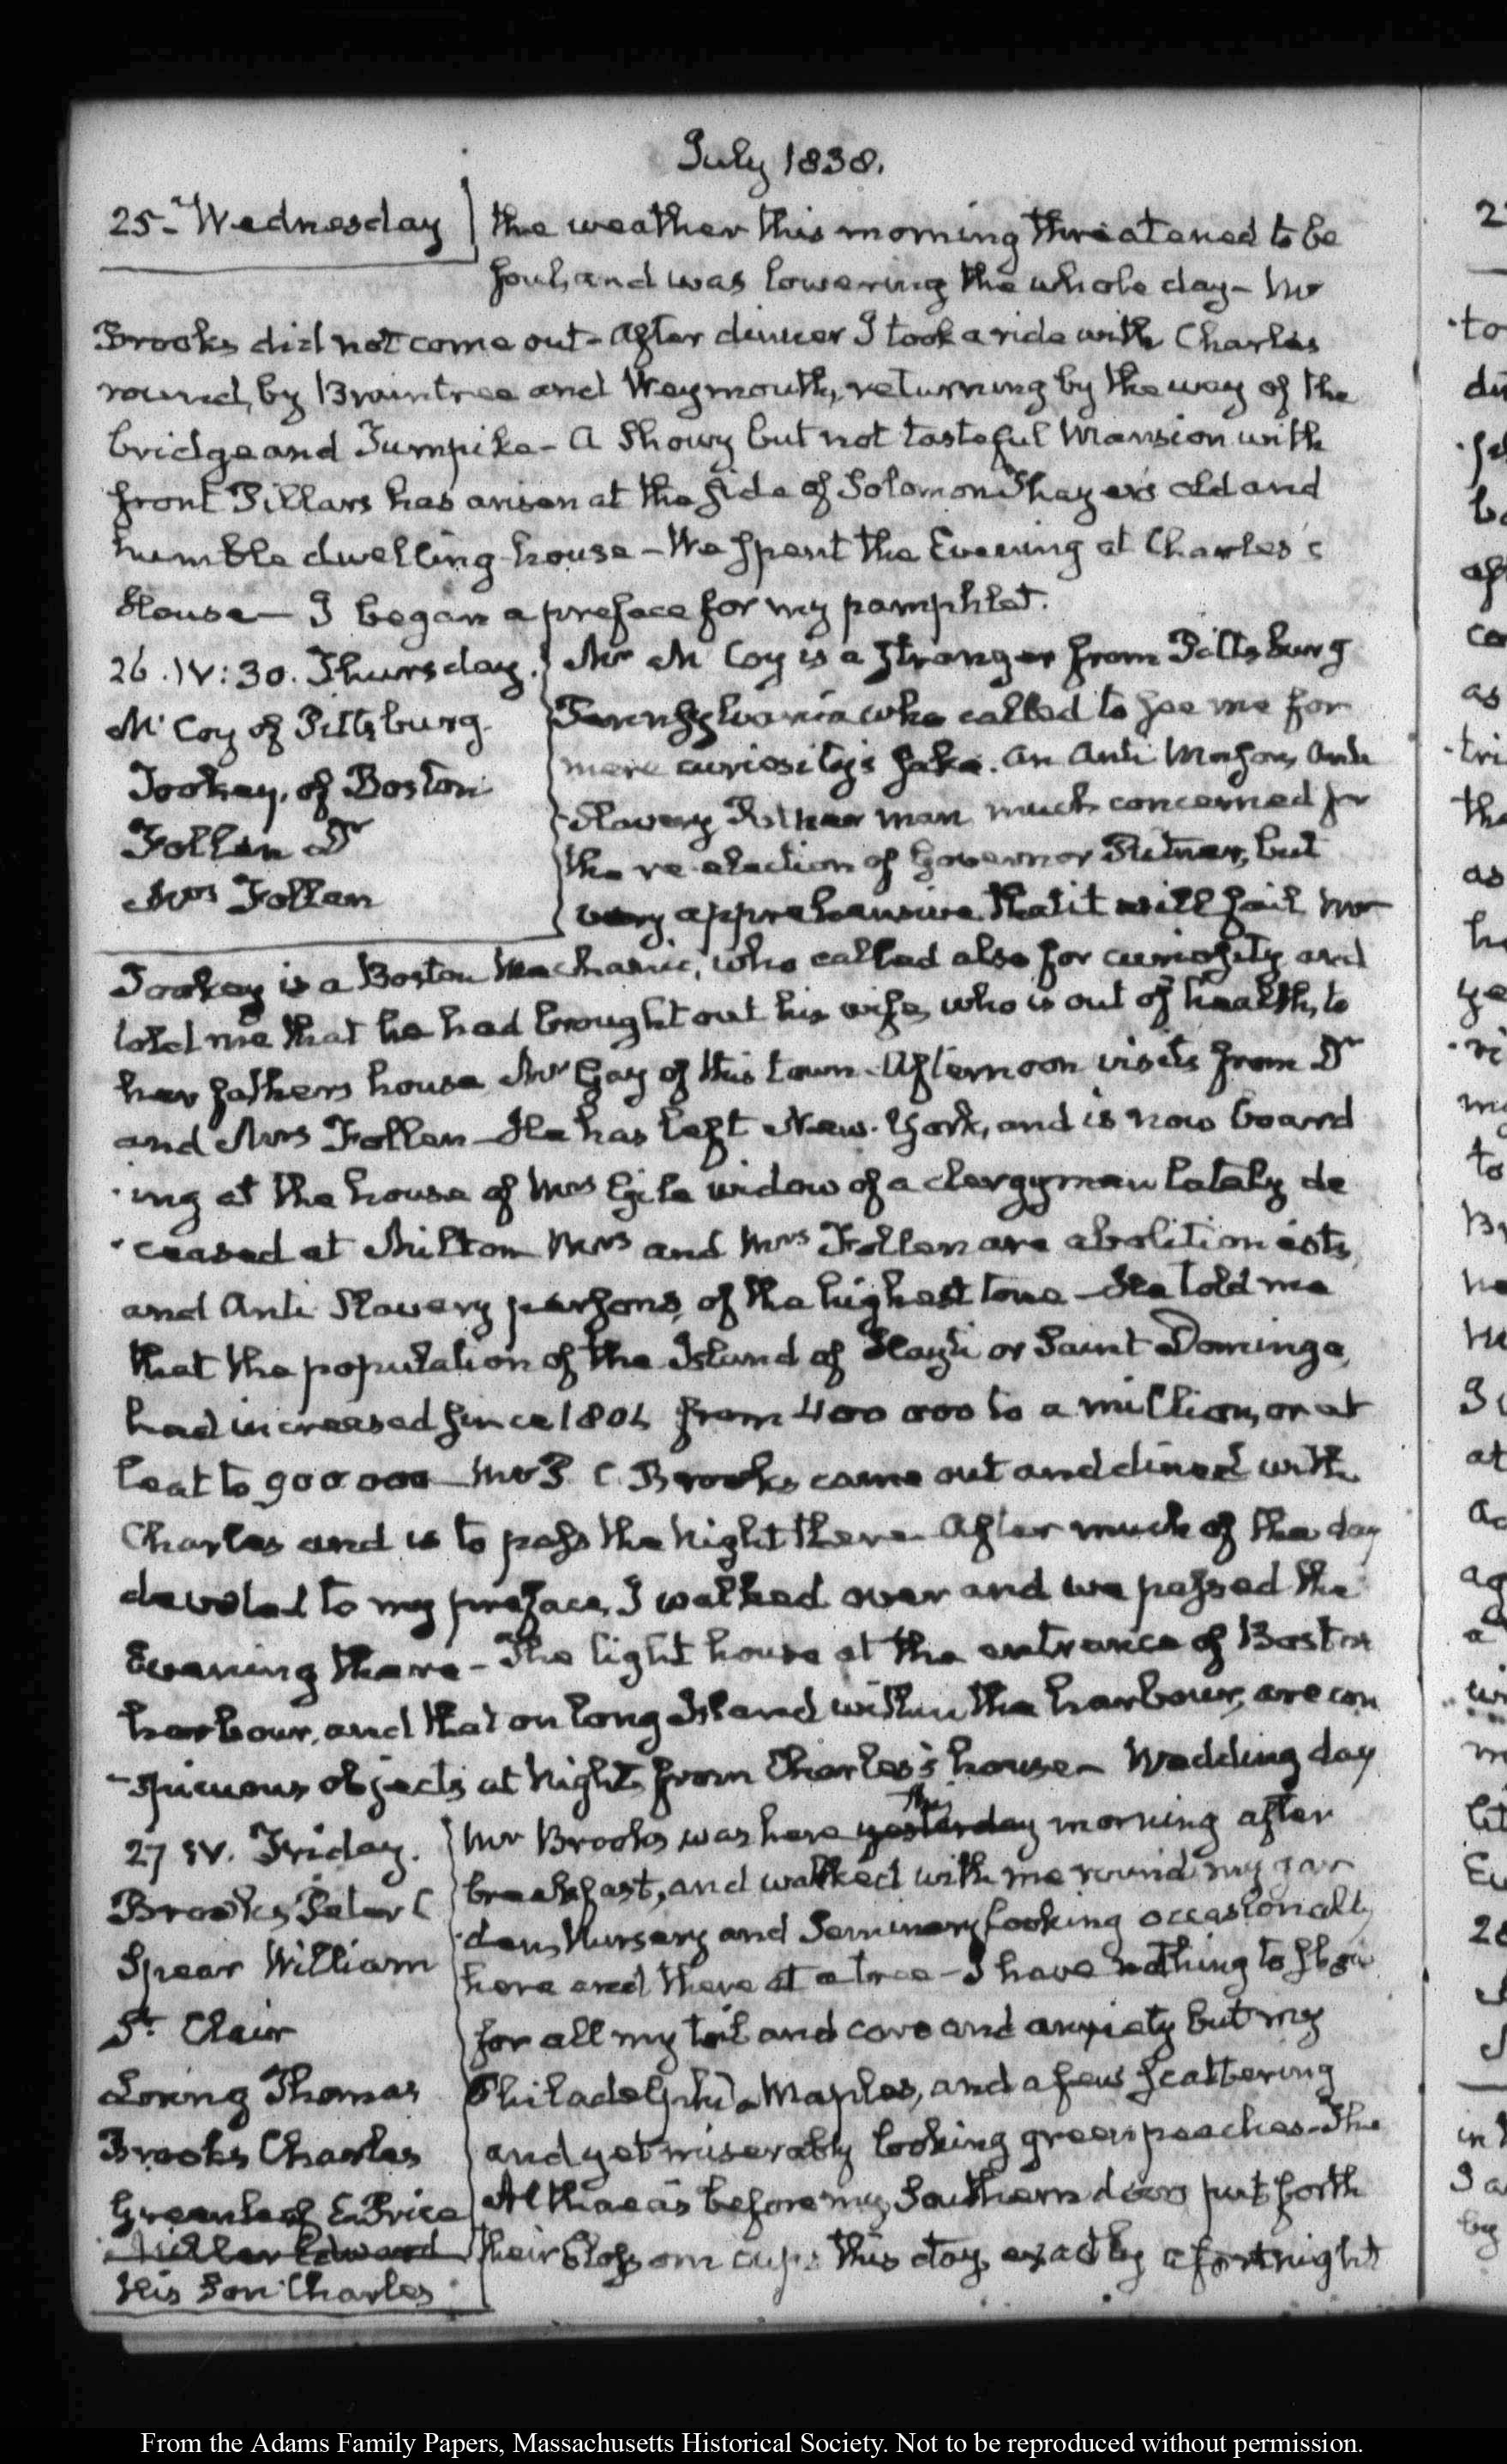 July 1838.
25. Wednesday
the weather this morning threatened to be
foul, and was lowering the whole day – Mr
Brooks did not come out – After dinner I took a ride with Charles
round, by Braintree and Weymouth, returning by the way of the
bridge and Turnpike – A Showy but not tasteful Mansion with
front Pillars has arisen at the side of Solomon Thayer's old and
humble dwelling-house – We spent the Evening at Charles's
House – I began a preface for my pamphlet.
26. IV:30. Thursday.
McCoy of Pittsburg
Tookey, of Boston
Follen Dr
Mrs Follen
Mr McCoy is a stranger from Pittsburg
Pennsylvania who called to see me for
mere curiosity's sake. An Anti Mason, Anti
Slavery Ritner man much concerned for
the re-election of Governor Ritner, but
very apprehensive that it will fail Mr
Tookey is a Boston Mechanic, who called also for curiosity and
told me that he had brought out his wife, who is out of health, to
her fathers house Mr Gay of this town – Afternoon visits from Dr
and Mrs Follen – He has left New-York, and is now board
-ing at the house of Mrs Gile widow of a clergyman lately de
-ceased at Milton Mrs and Mrs Follen are abolitionists,
and Anti Slavery persons, of the highest tone – He told me
that the population of the Island of Hayti or Saint Domingo,
had increased since 1804 from 400 000 to a million, or at
leat to 900 000 – Mr P. C. Brooks came out and dined with
Charles and is to pass the Night there – After much of the day
devoted to my preface, I walked over and we passed the
Evening there – The light house at the entrance of Boston
harbour, and that on long Island within the harbour, are con
-spicuous objects at Night, from Charles's house – Wedding day
27. IV. Friday.
Brooks Peter C
Spear William
St. Clair
Loring Thomas
Brooks Charles
Greenleaf E. Price
Miller Edward
His Son Charles
Mr Brooks was here yesterday This morning after
breakfast, and walked with me round my gar
-den, Nursery and Seminary looking occasionally
here and there at a tree – I have nothing to show
for all my toil and care and anxiety but my
Philadelphia Maples, and a few scattering
and yet miserably looking green peaches – The
Althaeas before my Southern door put forth
their blossom cups this day, exactly a fortnight
2
to
as
From the Adams Family Papers, Massachusetts Historical Society. Not to be reproduced without permission.